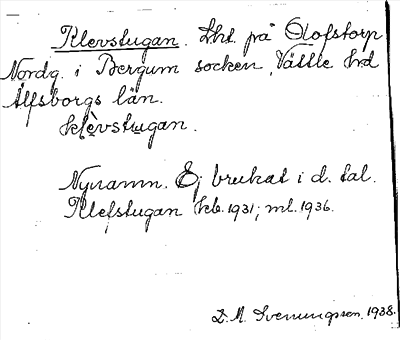 Klevstugan. Lht. på Olofstorp
Nordg. i Bergum socken, Vättle hd
Älfsborgs län.
klèvstugan.
Nynamn. Ej brukat i d. tal.
Klefstugan kb. 1931; ml. 1936.
D. A. Svenungsson. 1938.